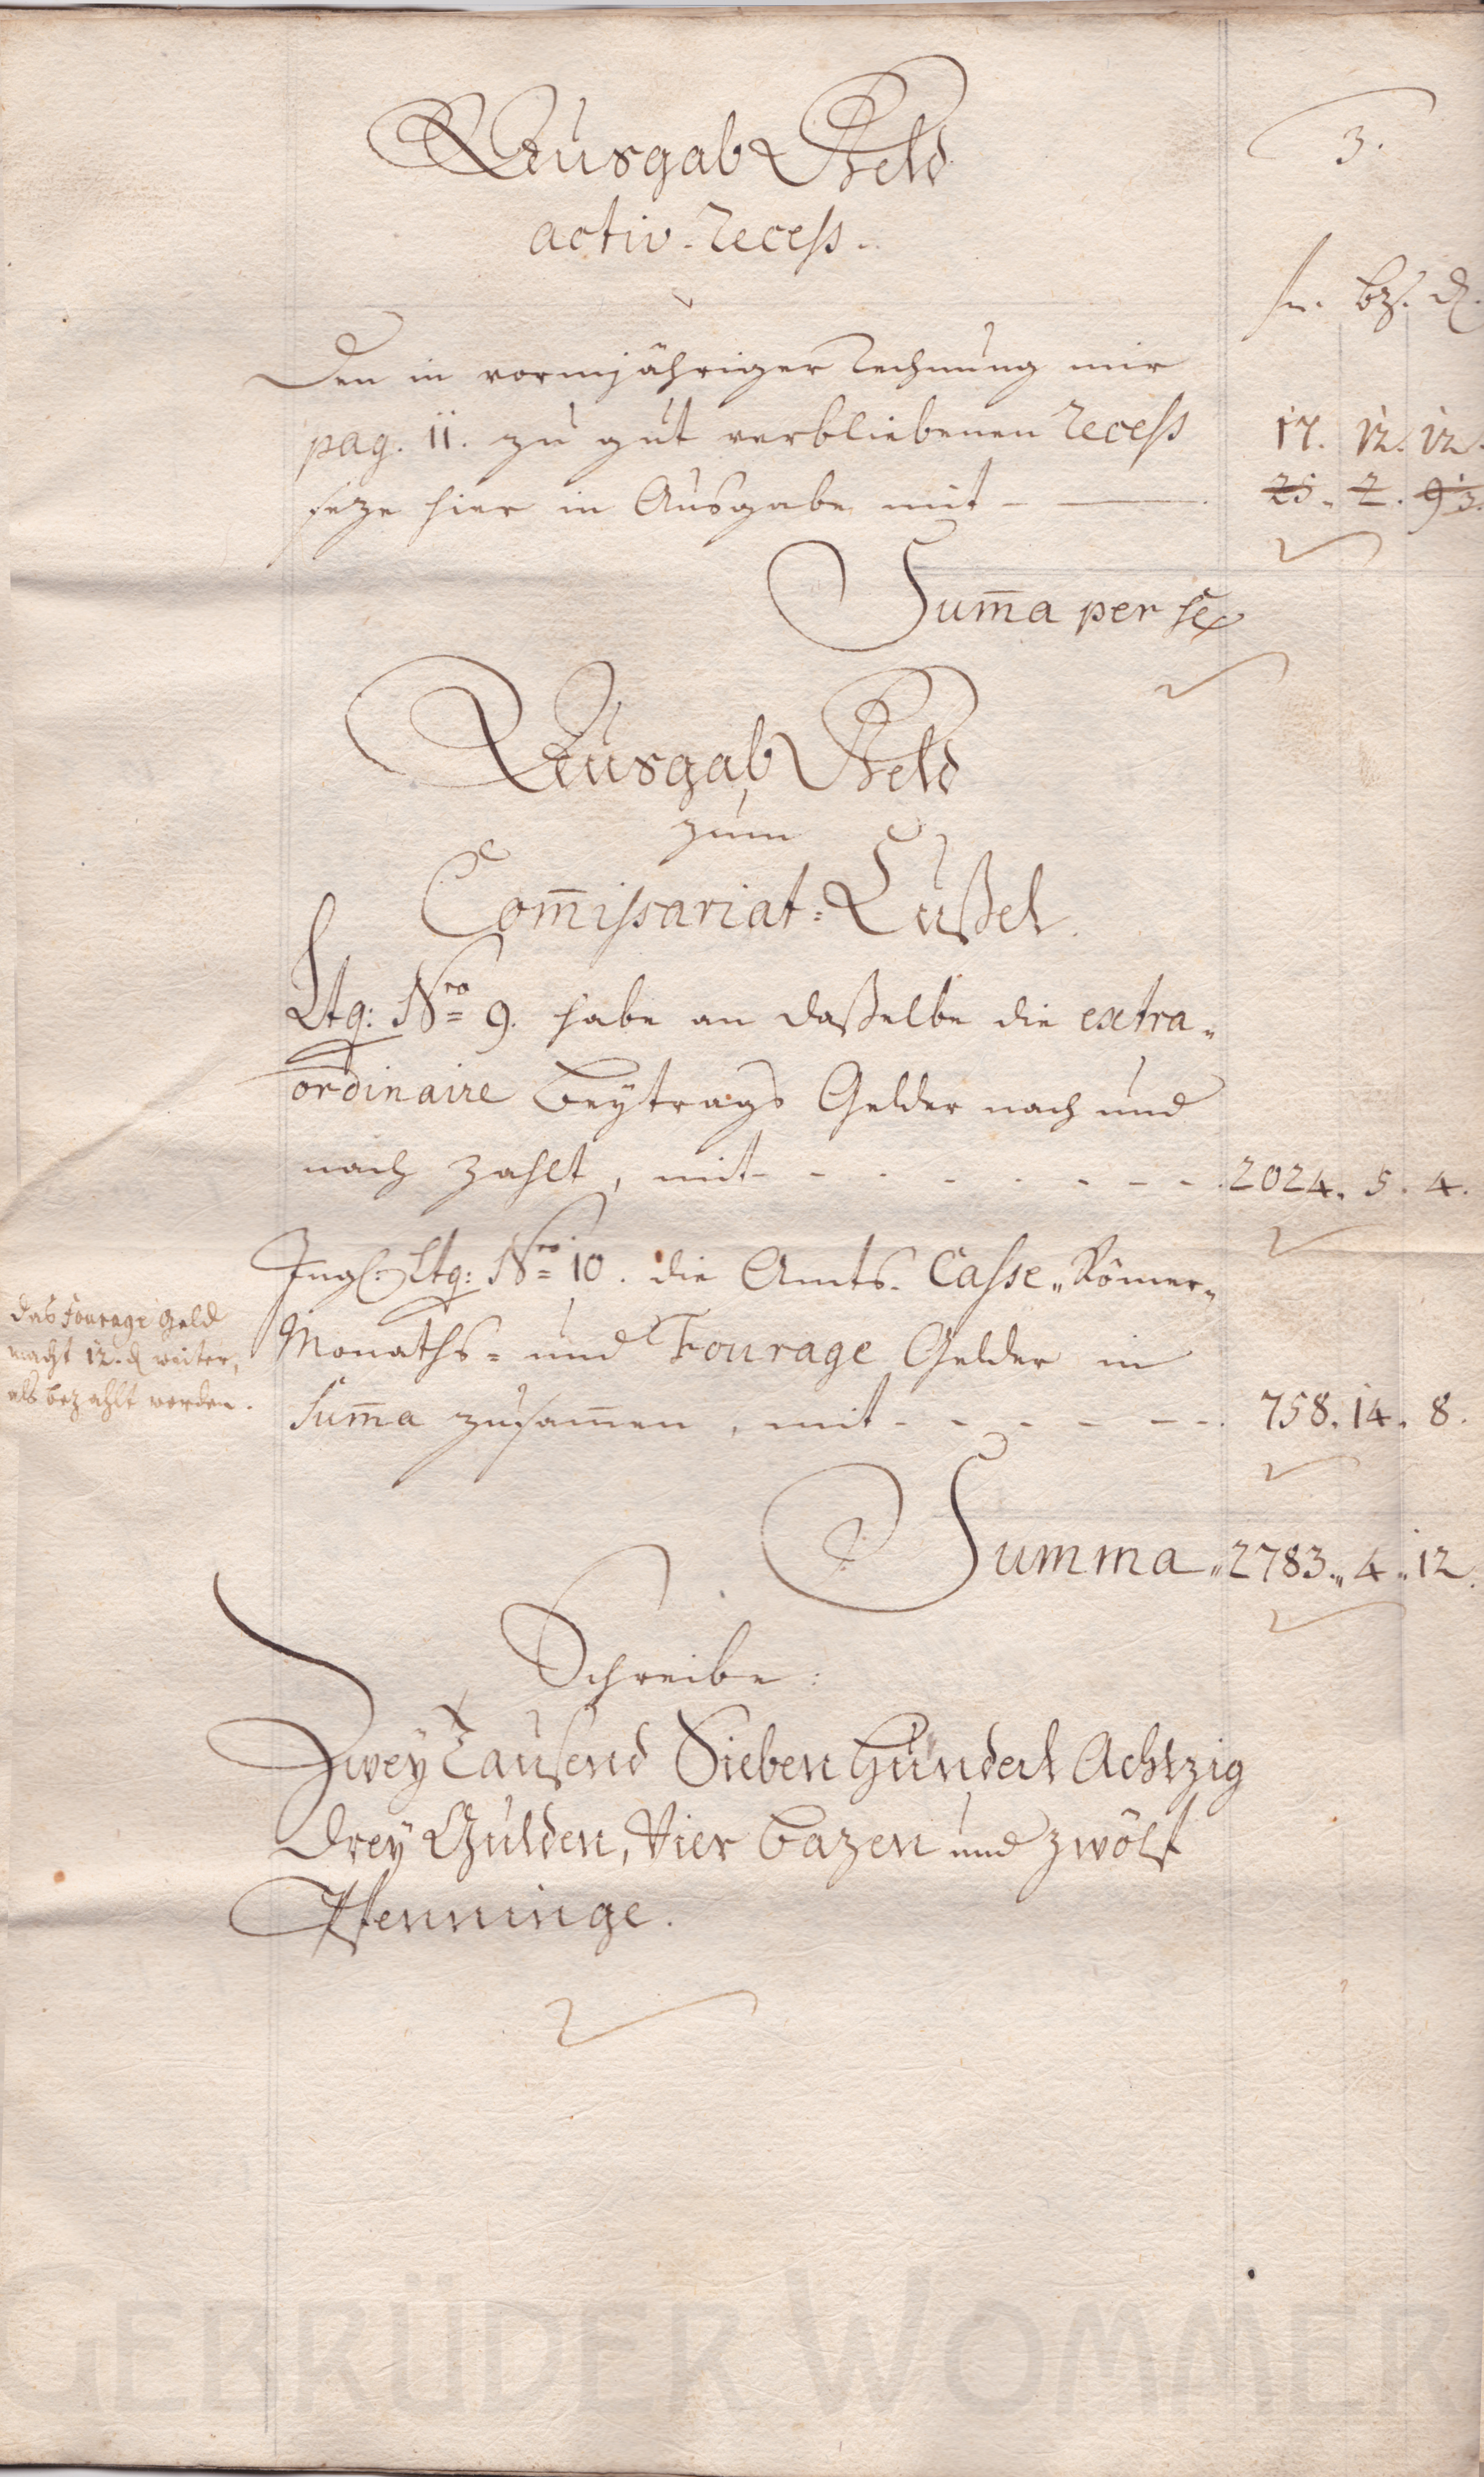 3.
Ausgab Geld
activ-Recess.
fl. bz. d.
Den in vormjähriger Rechnung mir
pag. 11. zu gut verbliebenen Recess 17. 12. 12.
seze hier in Ausgabe mit 25. 2. 9 3.
Sum̅a per se
Ausgab Geld
zum
Com̅issariat-Cussel.
Ltg: Nro 9. habe an dasselbe die extra-
ordinaire Beytrags Gelder nach und
nach zahlt, mit - - - - - - - - 2024. 5. 4.
Ingl: Ltg: Nro 10. die Amts-Casse-Römer-
das Fourage Geld
macht 12. d weiter,
als bezahlt worden.
Monaths- und Fourage Gelder in
Sum̅a zusam̅en, mit - - - - - - 758. 14. 8.
Summa 2783. 4. 12.
Schreibe:
Zwey Tausend Sieben Hundert Achtzig
Drey Gulden, Vier Bazen und zwölf
Pfenninge.
GEBRÜDER WOMMER